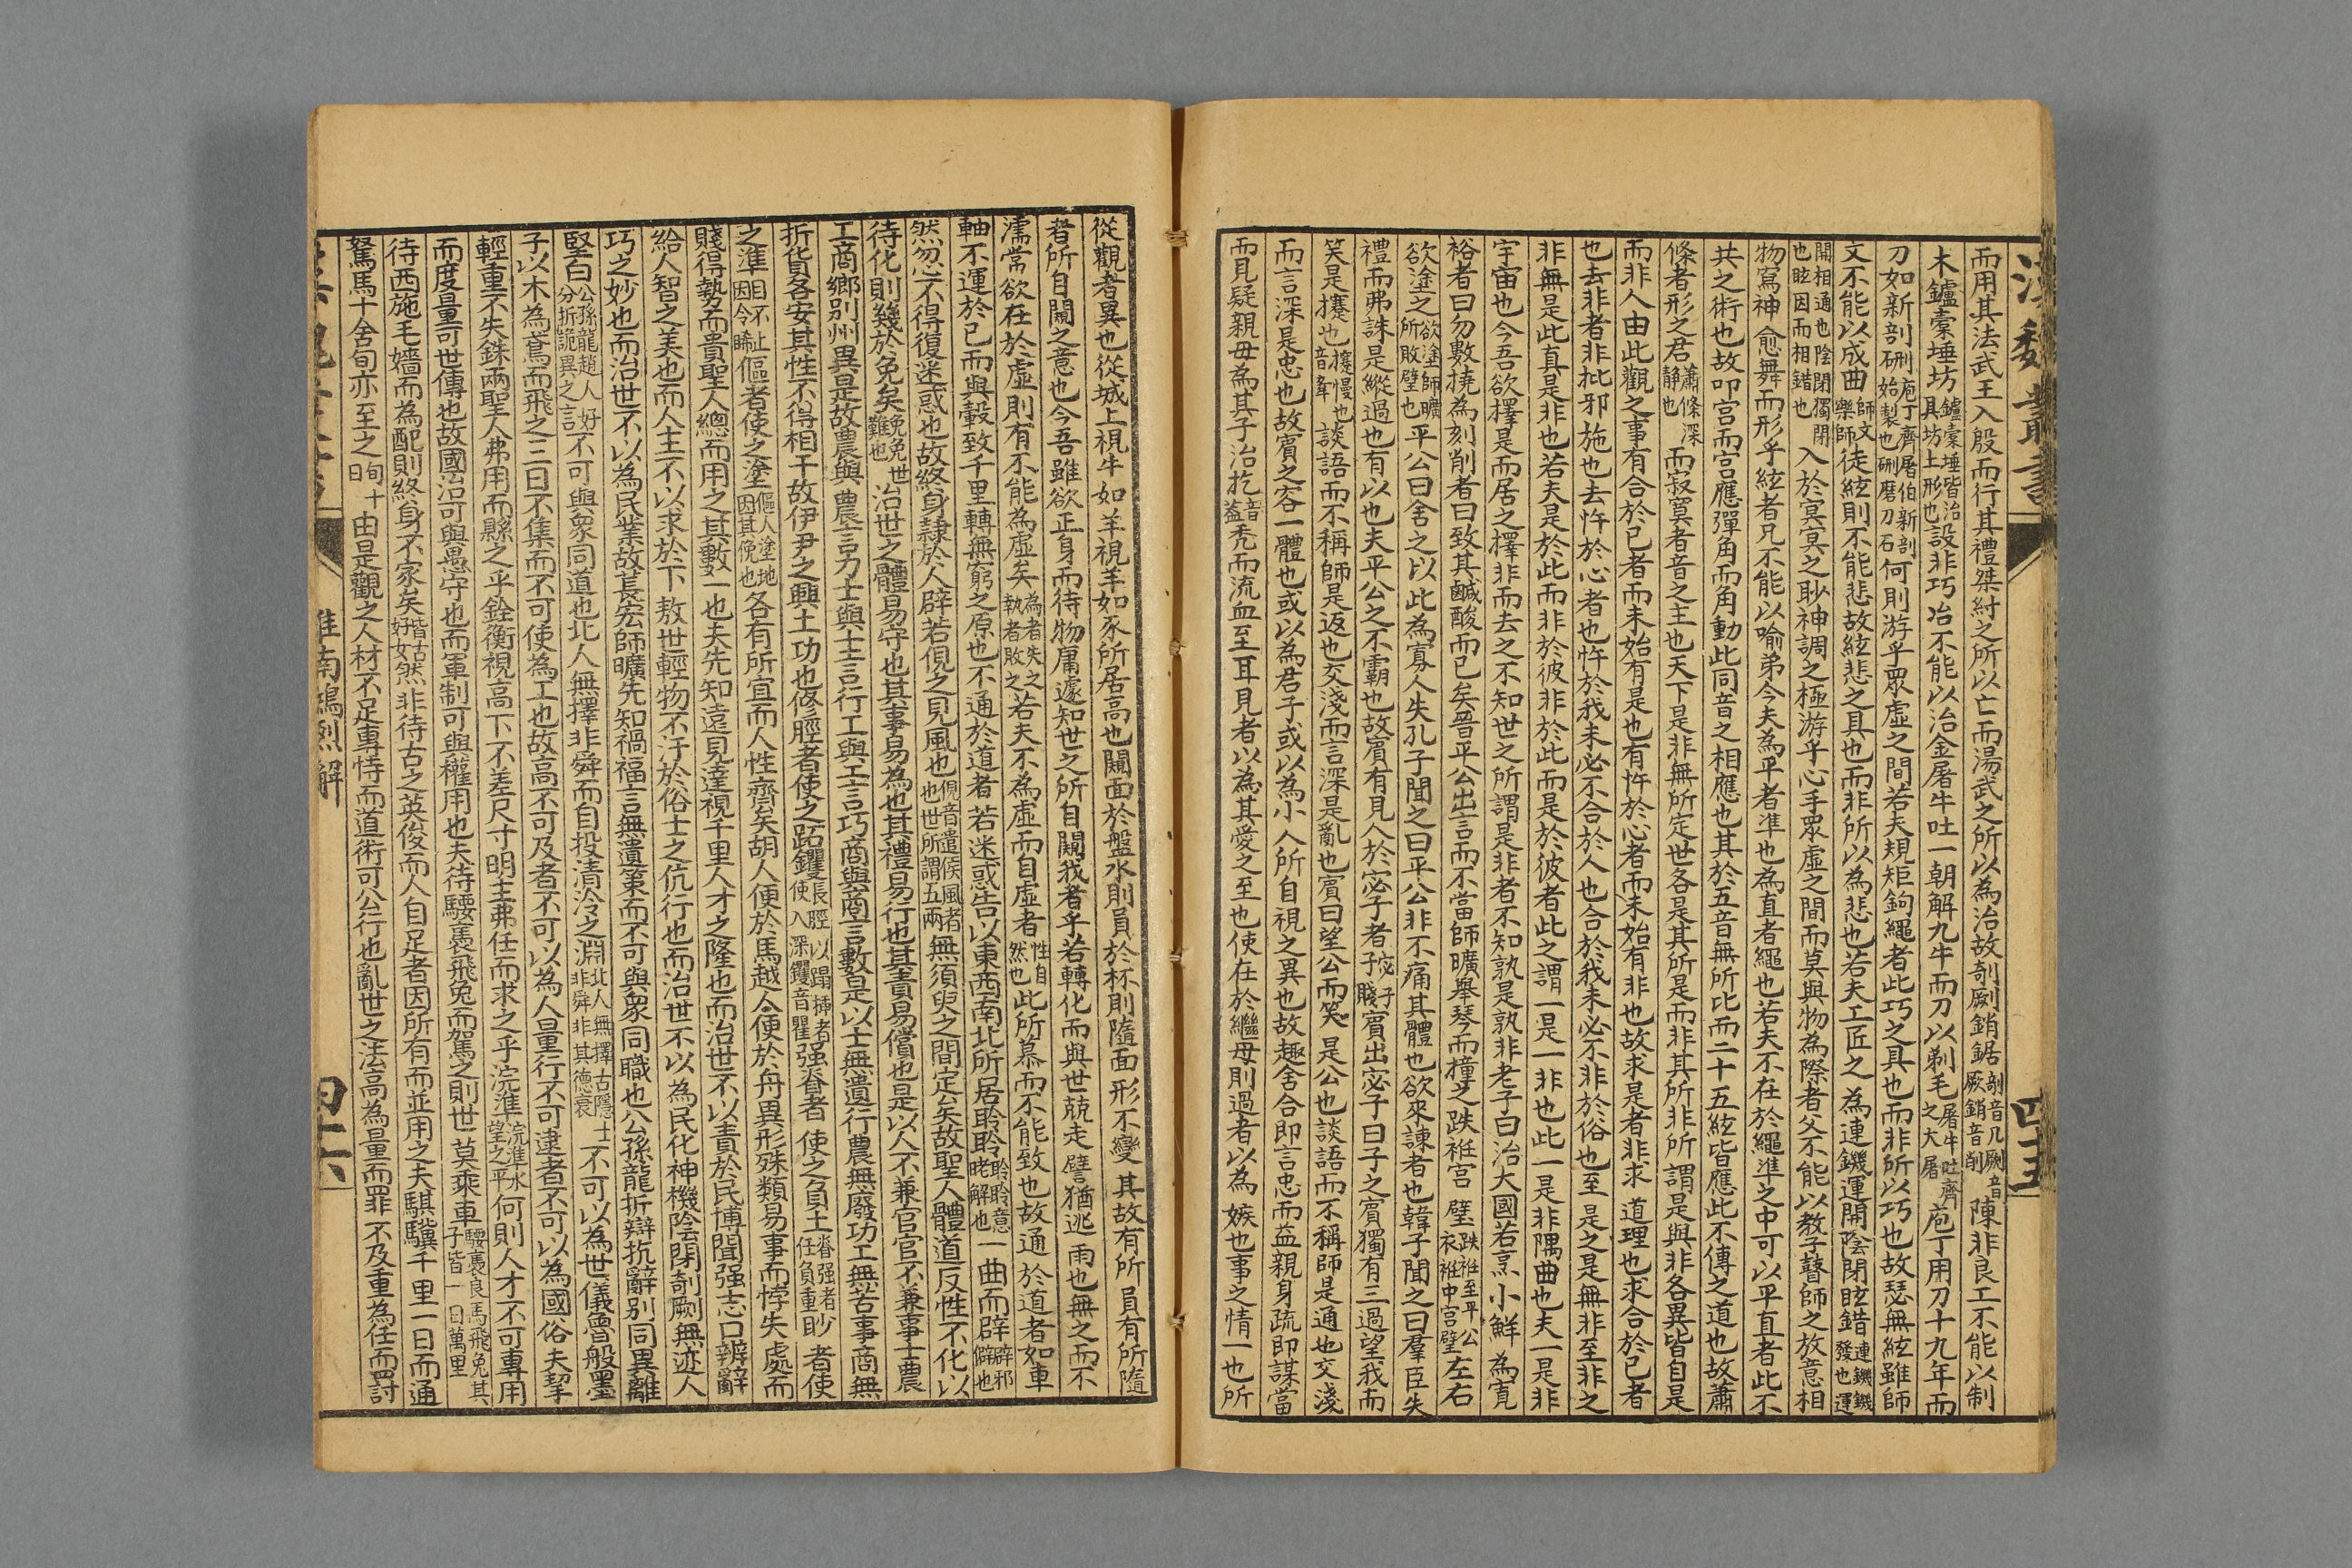 漢魏叢書
四十五
而用其法武王入殷而行其禮桀紂之所以亡而湯武之所以為治故剞劂銷鋸剞音几劂音厥銷音削陳非良工不能以制
木鑪橐埵坊鑪橐埵皆治具坊土形也設非巧冶不能以治金屠牛吐一朝解九牛而刀以剃毛屠牛吐齊之大屠庖丁用刀十九年而
刀如新剖硎庖丁齊屠伯新剖硎始製也硎磨刀石何則游乎眾虛之間若夫規矩鉤繩者此巧之具也而非所以巧也故瑟無絃雖師
文不能以成曲師文樂師徒絃則不能悲故絃悲之具也而非所以為悲也若夫工匠之為連鐖運開陰閉眩錯連鐖鐖發也運
開相通也陰閉獨閉也眩因而相錯也入於冥冥之眇神調之極游乎心手眾虛之間而莫與物為際者父不能以教子瞽師之放意相
物寫神愈舞而形乎絃者兄不能以喻弟今夫為平者準也為直者繩也若夫不在於繩準之中可以平直者此不
共之術也故叩宮而宮應彈角而角動此同音之相應也其於五音無所比而二十五絃皆應此不傳之道也故蕭
條者形之君蕭條深静也而寂寞者音之主也天下是非無所定世各是其所是而非其所非所謂是與非各異皆自是
而非人由此觀之事有合於已者而未始有是也有忤於心者而未始有非也故求是者非求道理也求合於已者
也去非者非批邪施也去忤於心者也忤於我未必不合於人也合於我未必不非於俗也至是之是無非至非之
非無是此真是非也若夫是於此而非於彼非於此而是於彼者此之謂一是一非也此一是非隅曲也夫一是非
宇宙也今吾欲擇是而居之擇非而去之不知世之所謂是非者不知孰是孰非老子曰治大國若烹小鮮為寬
裕者曰勿數撓為刻削者曰致其鹹酸而已矣晉平公出言而不當師曠舉琴而撞之跌袵宮壁跌袵至平公衣袵中宮壁左右
欲塗之欲塗師曠所敗壁也平公曰舍之以此為寡人失孔子聞之曰平公非不痛其體也欲來諫者也韓子聞之曰羣臣失
禮而弗誅是縱過也有以也夫平公之不霸也故賓有見人於宓子者宓子子賤賓出宓子曰子之賓獨有三過望我而
笑是攓也攓慢也音蹇談語而不稱師是返也交淺而言深是亂也賓曰望公而笑是公也談語而不稱師是通也交淺
而言深是忠也故賓之容一體也或以為君子或以為小人所自視之異也故趣舍合即言忠而益親身疏即謀當
而見疑親母為其子治扢禿而流血至耳見者以為其愛之至也使在於繼母則過者以為嫉也事之情一也所
從觀者異也從城上視牛如羊視羊如豕所居高也闚面於盤水則員於杯則隨面形不變其故有所員有所隨
者所自闚之意也今吾雖欲正身而待物庸遽知世之所自闚我者乎若轉化而與世競走譬猶逃雨也無之而不
濡常欲在於虛則有不能為虛矣為者失之執者敗之若夫不為虛而自虛者性自然也此所慕而不能致也故通於道者如車
軸不運於已而與轂致千里轉無窮之原也不通於道者若迷惑告以東西南北所居聆聆聆聆意曉解也一曲而辟辟邪僻也
然忽不得復迷惑也故終身隷於人辟若俔之見風也俔音遣候風者也世所謂五兩無須臾之間定矣故聖人體道反性不化以
待化則幾於免矣免免世難也治世之體易守也其事易為也其禮易行也其責易償也是以人不兼官官不兼事士農
工商鄉别州異是故農與農言力士與士言行工與工言巧商與商言數是以士無遺行農無廢功工無苦事商無
折貨各安其性不得相干故伊尹之興土功也修脛者使之跖钁長脛以蹋揷者使入深钁音瞿强脊者使之負土脊强者任負重眇者使
之準目不止因令睎傴者使之塗傴人塗地因其俛也各有所宜而人性齊矣胡人便於馬越人便於舟異形殊類易事而悖失處而
賤得勢而貴聖人總而用之其數一也夫先知遠見達視千里人才之隆也而治世不以責於民博聞强志口辨辭
給人智之美也而人主不以求於下敖世輕物不汙於俗士之伉行也而治世不以為民化神機陰閉剞劂無迹人
巧之妙也而治世不以為民業故萇宏師曠先知禍福言無遺策而不可與衆同職也公孫龍折辯抗辭别同異離
堅白公孫龍趙人好分折詭異之言不可與衆同道也北人無擇非舜而自投清泠之淵北人無擇古隱士非舜非其德衰不可以為世儀魯般墨
子以木為鳶而飛之三日不集而不可使為工也故高不可及者不可以為人量行不可逮者不可以為國俗夫挈
輕重不失銖兩聖人弗用而縣之乎銓衡視高下不差尺寸明主弗任而求之乎浣準浣準水望之平何則人才不可專用
而度量可世傳也故國治可與愚守也而軍制可與權用也夫待騕褭飛兔而駕之則世莫乘車騕褭良馬飛兔其子皆一日萬里
待西施毛嬙而為配則終身不家矣皆古好女然非待古之英俊而人自足者因所有而並用之夫騏驥千里一日而通
駑馬十舍旬亦至之旬十日由是觀之人材不足專恃而道術可公行也亂世之法高為量而罪不及重為任而罰
淮南鴻烈解
四十六